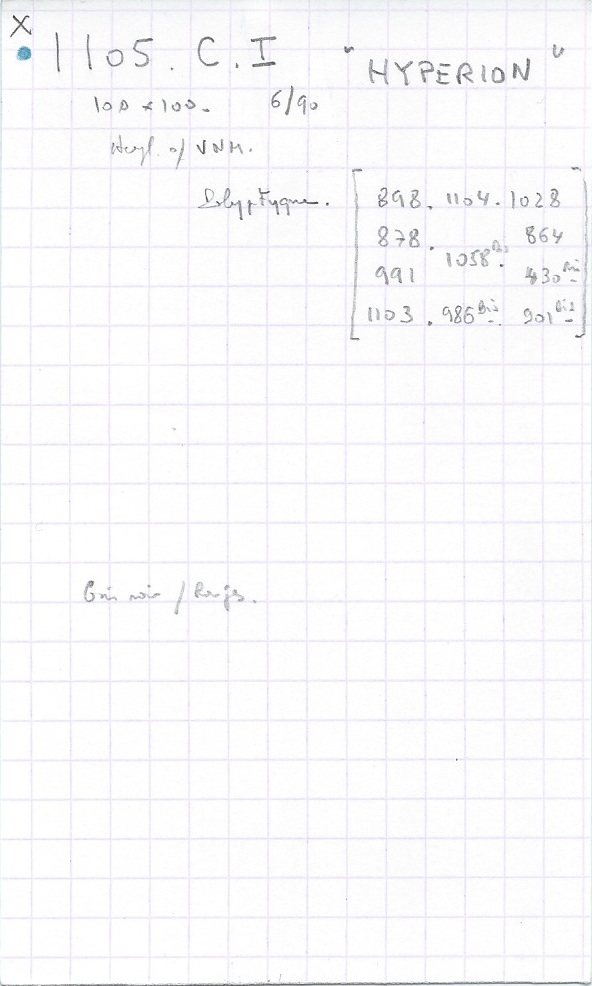 X
1105. C. I " HYPERION "
100 x 100. 6/90
Acryl. o/ VNM.
Polyptyque. [ 898. 1104. 1028
878. 864
1058 Bis.
991 430 Bis
1103. 986 Bis. 901 Bis ]
noir / Rouge.